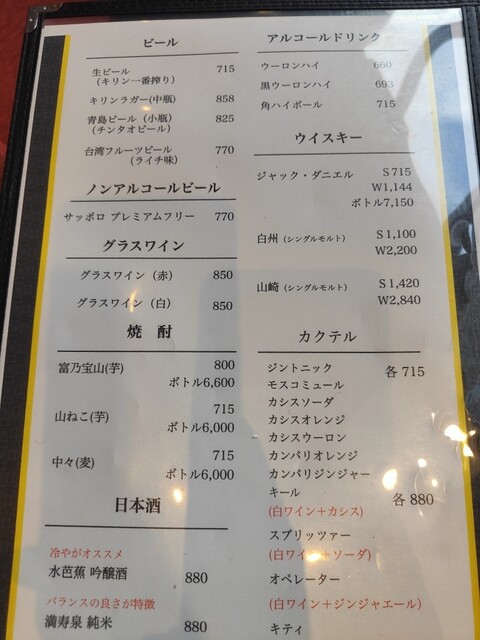 ビール
生ビール 715
(キリン一番搾り)
キリンラガー(中瓶) 858
青島ビール (小瓶) 825
(チンタオビール)
台湾フルーツビール 770
(ライチ味)
ノンアルコールビール
サッポロ プレミアムフリー 770
グラスワイン
グラスワイン (赤) 850
グラスワイン (白) 850
焼 酎
富乃宝山(芋) 800
ボトル6,600
山ねこ(芋) 715
ボトル6,000
中々(麦) 715
ボトル6,000
日本酒
冷やがオススメ
水芭蕉 吟醸酒 880
バランスの良さが特徴
満寿泉 純米 880
アルコールドリンク
ウーロンハイ 660
黒ウーロンハイ 693
角ハイボール 715
ウイスキー
ジャック・ダニエル S715
W1,144
ボトル7,150
白州 (シングルモルト) S1,100
W2,200
山崎 (シングルモルト) S1,420
W2,840
カクテル
ジントニック 各 715
モスコミュール
カシスソーダ
カシスオレンジ
カシスウーロン
カンパリオレンジ
カンパリジンジャー
キール 各 880
(白ワイン+カシス)
スプリッツァー
(白ワイン+ソーダ)
オペレーター
(白ワイン+ジンジャエール)
キティ